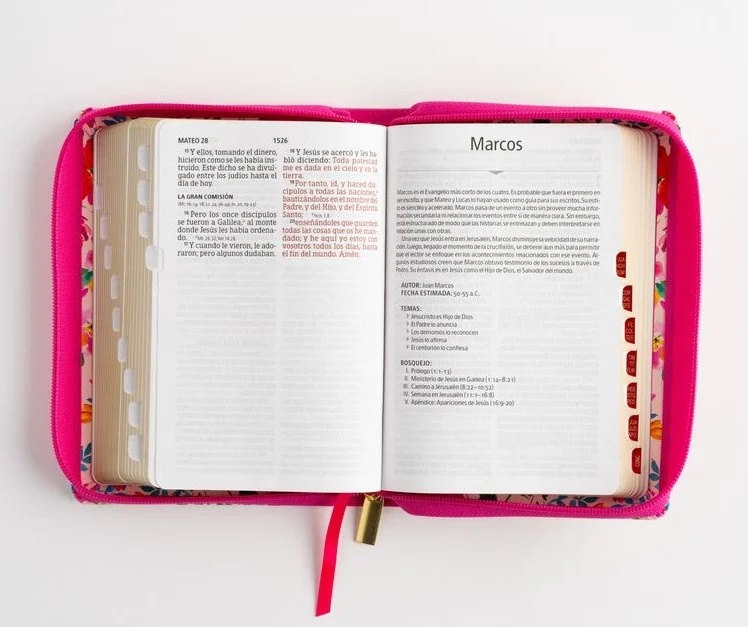 MATEO 28
1526
15 Y ellos, tomando el dinero,
hicieron como se les había ins-
truido. Este dicho se ha divul-
gado entre los judíos hasta el
día de hoy.
LA GRAN COMISIÓN
16 Pero los once discípulos
se fueron a Galilea, al monte
donde Jesús les había ordena-
do.
17 Y cuando le vieron, le ado-
raron; pero algunos dudaban.
18 Y Jesús se acercó y les ha-
bló diciendo: Toda potestad
me es dada en el cielo y en la
tierra.
19 Por tanto, id, y haced dis-
cípulos a todas las naciones,
bautizándolos en el nombre del
Padre, y del Hijo, y del Espíritu
Santo;
20 enseñándoles que guarden
todas las cosas que os he man-
dado; y he aquí yo estoy con
vosotros todos los días, hasta
el fin del mundo. Amén.
Marcos
Marcos es el Evangelio más corto de los cuatro. Es probable que fuera el primero en
ser escrito, y que Mateo y Lucas lo hayan usado como guía para sus escritos. Su esti-
lo es sencillo y acelerado. Marcos pasa de un evento a otro sin proveer mucha infor-
mación secundaria ni relacionar los eventos entre sí de manera clara. Sin embargo,
está estructurado de modo que las historias se entrelazan y deben interpretarse en
relación unas con otras.
Una vez que Jesús entra en Jerusalén, Marcos disminuye la velocidad de su narra-
ción. Luego, llegado el momento de la crucifixión, se detiene aun más para permitir
que el lector se enfoque en los acontecimientos relacionados con ese evento. Al-
gunos estudiosos creen que Marcos obtuvo testimonio de los sucesos a través de
Pedro. Su énfasis es en Jesús como el Hijo de Dios, el Salvador del mundo.
AUTOR: Juan Marcos
FECHA ESTIMADA: 50-55 a.C.
TEMAS:
Jesucristo es Hijo de Dios
El Padre lo anuncia
Los demonios lo reconocen
Jesús lo afirma
El centurión lo confiesa
BOSQUEJO:
I. Prólogo (1:1-13)
II. Ministerio de Jesús en Galilea (1:14–8:21)
III. Camino a Jerusalén (8:22–10:52)
IV. Semana en Jerusalén (11:1–16:8)
V. Apéndice: Apariciones de Jesús (16:9-20)